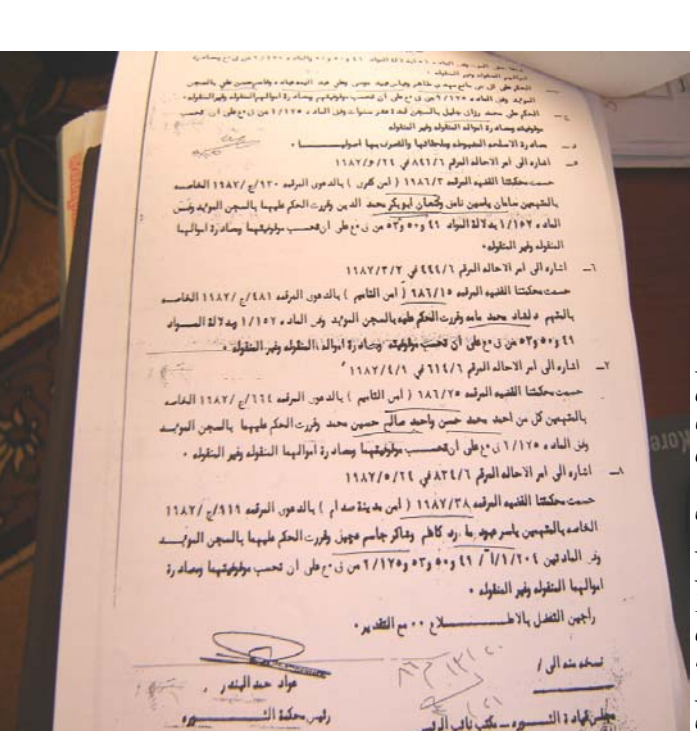 اموالهم المنقوله وغير المنقوله ٠
الحكم على كل من مانع مهدي طاهر وعباس عبيد موسى وعلي عبد العباده وقاسم حسن علي بالسجن
المؤبد وفق الماده ١٧٥/٢ من ق٠ع على ان تحسب موقوفيتهم ومصادرة اموالهم المنقوله وغير المنقوله ٠
ج ــ الحكم على محمد رزاق جليل بالسجن لمدة عشر سنوات وفق الماده ١٧٥/١ من ق٠ع على ان تحسب
موقوفيته ومصادرة امواله المنقوله وغير المنقوله
د ــ مصادرة الاسلحه المضبوطه وملحقاتها والتصرف بها اصوليا ٠
٥ــ اشاره الى امر الاحاله المرقم ٨٤١/٦ في ١٩٨٧/٥/٢٤
حسمت محكمتنا القضيه المرقمه ١٩٨٦/٣ ( امن كفري ) بالدعوى المرقمه ٩٣٠/ج/١٩٨٧ الخاصه
بالمتهمين سامان ياسين نامق ولقمان ابوبكر محمد الدين وقررت الحكم عليهما بالسجن المؤبد وفق
الماده ١/١٥٧ بدلالة المواد ٤٩ و٥٠ و٥٣ من ق٠ع على ان تحسب موقوفيتهما ومصادرة اموالهما
المنقوله وغير المنقوله ٠
٦ــ اشاره الى امر الاحاله المرقم ٤٤٤/٦ في ١٩٨٧/٣/٢
حسمت محكمتنا القضيه المرقمه ٩٨٦/١٥ ( امن التاميم ) بالدعوى المرقمه ٤٨١/ج/١٩٨٧ الخاصه
بالمتهم دلشاد محمد مامه وقررت الحكم عليه بالسجن المؤبد وفق الماده ١/١٥٧ وبدلالة المــواد
٤٩ و٥٠ و٥٣ من ق٠ع على ان تحسب موقوفيته ومصادرة امواله المنقوله وغير المنقوله ٠
٧ــ اشاره الى امر الاحاله المرقم ٦١٤/٦ في ١٩٨٧/٤/٩
حسمت محكمتنا القضيه المرقمه ٩٨٦/٧٥ ( امن التاميم ) بالدعوى المرقمه ٦٦٤/ج/١٩٨٧ الخاصه
بالمتهمين كل من احمد محمد حسن واحمد صالح حسين محمد وقررت الحكم عليهما بالسجن المؤبــد
وفق الماده ٢/١٧٥ ق٠ع على ان تحسب موقوفيتهما ومصادرة اموالهما المنقوله وغير المنقوله ٠
٨ــ اشاره الى امر الاحاله المرقم ٨٣٤/٦ في ١٩٨٧/٥/٢٤
حسمت محكمتنا القضيه المرقمه ١٩٨٧/٣٨ ( امن مدينة صدام ) بالدعوى المرقمه ٩١٩/ج/١٩٨٧
الخاصه بالمتهمين ياسر عبود كاظم وشاكر جاسم عجيل وقررت الحكم عليهما بالسجن المؤبــد
وفق المادتين ٢٠٤/١/أ/ ٤٩ و٥٠ و٥٣ و٢/١٧٥ من ق٠ع على ان تحسب موقوفيتهما ومصادرة
اموالهما المنقوله وغير المنقوله ٠
راجين التفضل بالاطــــلاع ٠٠ مع التقدير ٠
نسخه منه الى /
عواد حمد البندر
مجلس قيادة الثــوره ــ مكتب نائب الرئيس
رئيس محكمة الثــــوره
Kore